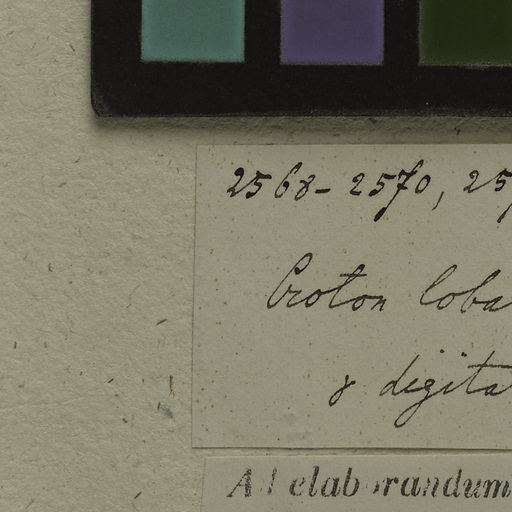 2568-2570, 25
Croton loba
γ digita
Ad elaborandum